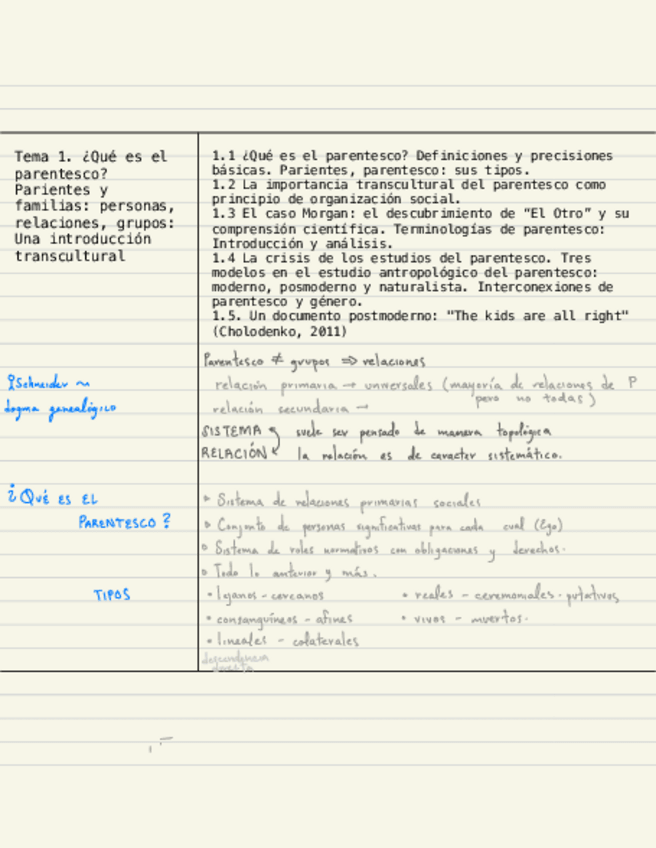 Tema 1. ¿Qué es el
parentesco?
Parientes y
familias: personas,
relaciones, grupos:
Una introducción
transcultural
1.1 ¿Qué es el parentesco? Definiciones y precisiones
básicas. Parientes, parentesco: sus tipos.
1.2 La importancia transcultural del parentesco como
principio de organización social.
1.3 El caso Morgan: el descubrimiento de "El Otro" y su
comprensión científica. Terminologías de parentesco:
Introducción y análisis.
1.4 La crisis de los estudios del parentesco. Tres
modelos en el estudio antropológico del parentesco:
moderno, posmoderno y naturalista. Interconexiones de
parentesco y género.
1.5. Un documento postmoderno: "The kids are all right"
(Cholodenko, 2011)
Parentesco ≠ grupos ⇒ relaciones
Schneider ~
dogma genealógico
relación primaria → universales (mayoría de relaciones de P
pero no todas)
relación secundaria →
SISTEMA suele ser pensado de manera topológica
RELACIÓN la relación es de caracter sistemático.
¿QUÉ ES EL
PARENTESCO?
• Sistema de relaciones primarias sociales
• Conjunto de personas significativas para cada cual (Ego)
• Sistema de roles normativos con obligaciones y derechos.
• Todo lo anterior y más.
TIPOS
• lejanos - cercanos • reales - ceremoniales - putativos
• consanguíneos - afines • vivos - muertos.
• lineales - colaterales
descendencia